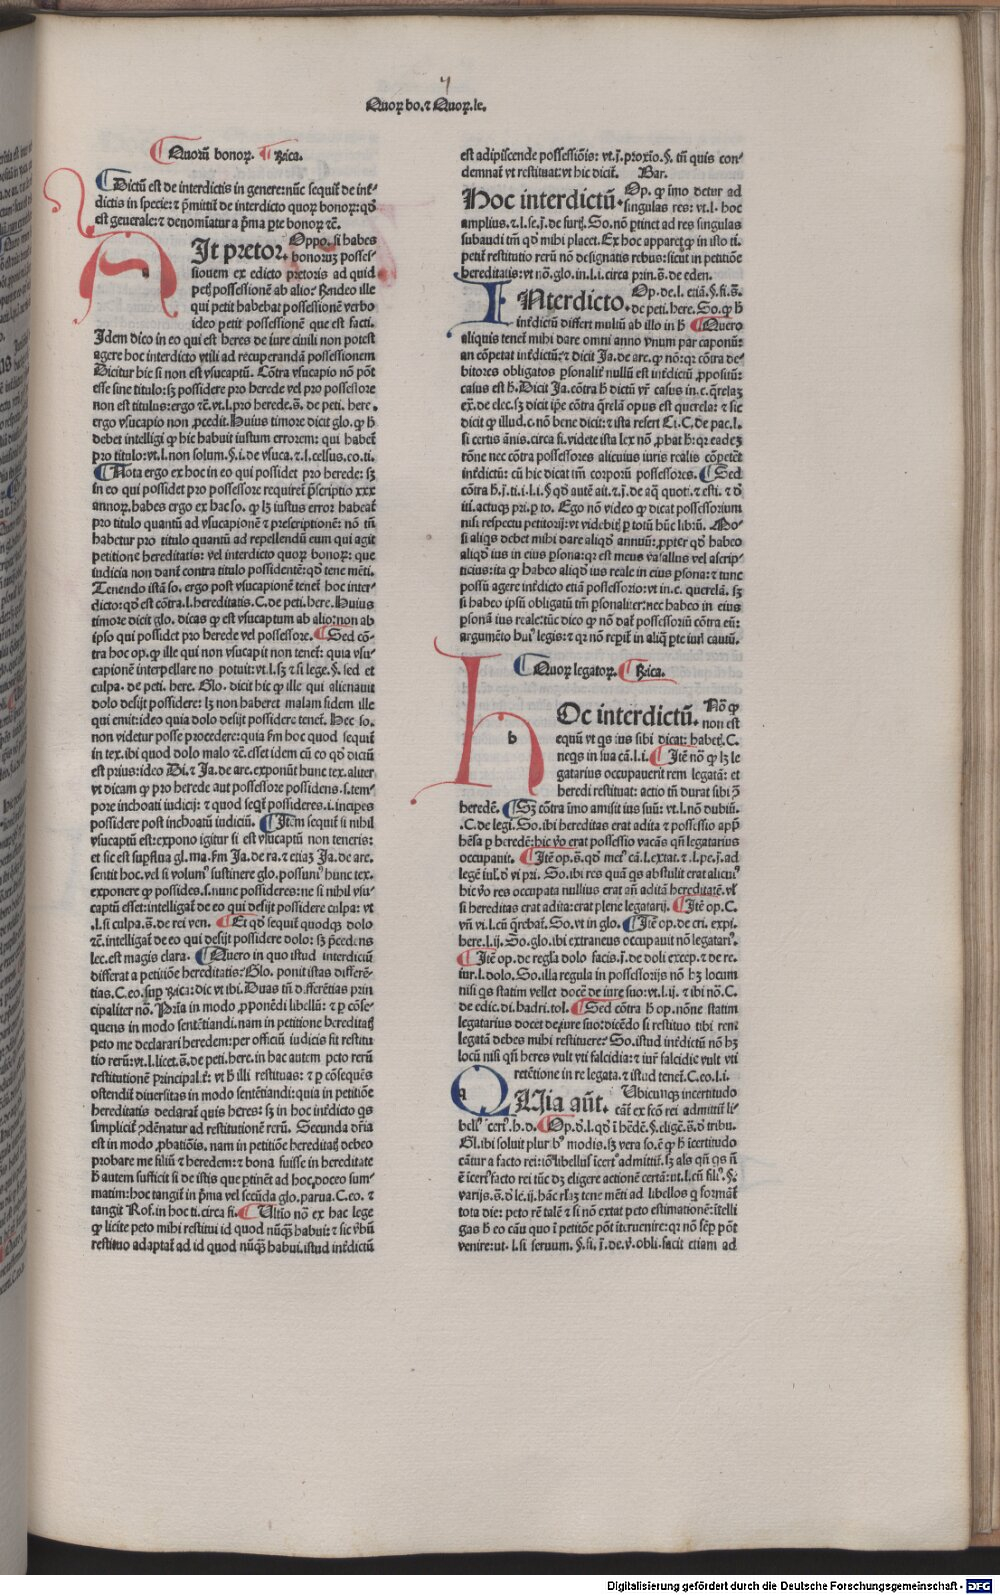 Quoꝝ bo. ⁊ Quoꝝ. le.
¶ Quorū bonoꝝ. ¶ Rica.
¶ Dictū est de interdictis in genere: nūc sequit᷑ de inť-
dictis in specie: ⁊ p̄mittit᷑ de interdicto quoꝝ bonoꝝ: qđ
est generale: ⁊ denomīatur a p̄ma ꝑte bonoꝝ ⁊c̄.
AIt pretor. Oppo. si habes
bonoruꝫ posses-
sionem ex edicto pretoris ad quid
petꝭ possessionē ab alio: Rn̄deo ille
qui petit habebat possessionē verbo
ideo petit possessionē que est facti.
Idem dico in eo qui est heres de iure ciuili non potest
agere hoc interdicto vtili ad recuperandā possessionem
Dicitur hic si non est vsucaptū. Cōtra vsucapio nō pōt
esse sine titulo: sꝫ possidere pro herede vel pro possessore
non est titulus: ergo ⁊c̄. vt. l. pro herede. s̄. de peti. here.
ergo vsucapio non ꝓcedit. Huius timore dicit glo. ꝙ h̄
debet intelligi ꝙ hic habuit iustum errorem: qui habet᷑
pro titulo: vt. l. non solum. §. i. de vsuca. ⁊. l. celsus. eo. ti.
¶ Nota ergo ex hoc in eo qui possidet pro herede: sꝫ
in eo qui possidet pro possessore requiret᷑ p̄scriptio xxx
annoꝝ. habes ergo ex hac so. ꝙ lꝫ iustus error habeat᷑
pro titulo quantū ad vsucapionē ⁊ prescriptionē: nō tn̄
habetur pro titulo quantū ad repellendū eum qui agit
petitione hereditatis: vel interdicto quoꝝ bonoꝝ: que
iudicia non dant᷑ contra titulo possidentē: qđ tene mēti.
Tenendo istā so. ergo post vsucapionē tenet᷑ hoc inter-
dicto: qđ est cōtra. l. hereditatis. C. de peti. here. Huius
timore dicit glo. dicas ꝙ est vsucaptum ab alio: non ab
ipso qui possidet pro herede vel possessore. ¶ Sed cō-
tra hoc op. ꝙ ille qui non vsucapit non tenet᷑: quia vsu-
capionē interpellare no potuit: vt. l. sꝫ ⁊ si lege. §. sed et
culpa. de peti. here. Glo. dicit hic ꝙ ille qui alienauit
dolo desijt possidere: lꝫ non haberet malam fidem ille
qui emit: ideo quia dolo desijt possidere tenet᷑. Hec so.
non videtur posse ꝓcedere: quia s̄m hoc quod sequit᷑
in tex. ibi quod dolo malo ⁊c̄. esset idem cū eo qđ dictū
est prius: ideo Di. ⁊ Ja. de are. exponūt hunc tex. aliter
vt dicam ꝙ pro herede aut possessore possidens. s. tem-
pore inchoati iudicij: ⁊ quod seqt᷑ possideres. i. incipes
possidere post inchoatū iudiciū. ¶ Item sequit᷑ si nihil
vsucaptū est: expono igitur si est vsucaptū non teneris:
et sic est supflua gl. ma. s̄m Ja. de ra. ⁊ etiaꝫ Ja. de are.
sentit hoc. vel si volumꝰ sustinere glo. possumꝰ hunc tex.
exponere ꝙ possides. s. nunc possideres: ne si nihil vsu-
captū esset: intelligat᷑ de eo qui desijt possidere culpa: vt
.l. si culpa. s̄. de rei ven. ¶ Et qđ sequit᷑ quodqꝫ dolo
⁊c̄. intelligat᷑ de eo qui desijt possidere dolo: sꝫ p̄cedens
lec. est magis clara. ¶ Quero in quo istud interdiciū
differat a petitiōe hereditatis: Glo. ponit istas differē-
tias. C. eo. suꝑ Rica: dic vt ibi. Duas tn̄ differētias prin
cipaliter nō. Prīa in modo ꝓponēdi libellū: ⁊ ꝑ cōse-
quens in modo sentētiandi. nam in petitione hereditatꝭ
peto me declarari heredem: per officiū iudicis sit restitu
tio rerū: vt. l. licet. s̄. de peti. here. in hac autem peto rerū
restitutionē principalit᷑: vt h̄ illi restituas: ⁊ ꝑ cōsequēs
ostendit᷑ diuersitas in modo sentētiandi: quia in petitiōe
hereditatis declarat᷑ quis heres: sꝫ in hoc inťdicto qs
simplicit᷑ ꝯdēnatur ad restitutionē rerū. Secunda dr̄ia
est in modo ꝓbatiōis. nam in petitiōe hereditatꝭ debeo
probare me filiū ⁊ heredem: ⁊ bona fuisse in hereditate
h̄ autem sufficit si de istis que ꝑtinēt ad hoc, doceo sum-
matim: hoc tangit᷑ in p̄ma vel secūda glo. parua. C. eo. ⁊
tangit Rof. in hoc ti. circa fi. ¶ Ultīo nō ex hac lege
ꝙ licite peto mihi restitui id quod nūqꝫ habui: ⁊ sic ṽbū
restituo adaptat᷑ ad id quod nūqꝫ habui. istud inťdictū
est adipiscende possessiōis: vt. j. proxīo. §. tn̄ quis con-
demnat᷑ vt restituat: vt hic dicit᷑. Bar.
Hoc interdictū. Op. ꝙ īmo detur ad
singulas res: vt. l. hoc
amplius. ⁊. l. se. j. de furtꝭ. So. nō ꝑtinet ad res singulas
subaudi tm̄ qđ mihi placet. Ex hoc apparet ꝙ in isto ti.
petit᷑ restitutio rerū nō designatis rebus: sicut in petitiōe
hereditatis: vt nō. glo. in. l. i. circa prin. s̄. de eden.
INterdicto. Op. de. l. etiā. §. fi. s̄.
de peti. here. So. ꝙ h̄
inťdictū differt multū ab illo in h̄ ¶ Quero
aliquis tenet᷑ mihi dare omni anno vnum par caponū:
an cōpetat inťdictū: ⁊ dicit Ja. de are. ꝙ nō: qꝛ cōtra de-
bitores obligatos ꝑsonalit᷑ nullū est inťdictū ꝓpositū:
casus est h̄. Dicit Ja. cōtra h̄ dictū vr̄ casus in. c. q̄relaꝫ
ex̄. de elec. sꝫ dicit ip̄e cōtra q̄relā opus est querela: ⁊ sic
dicit ꝙ illud. c. nō bene dicit: ⁊ ista refert Ci. C. de pac. l.
si certis ānis. circa fi. videte ista lex nō ꝓbat h̄: qꝛ eadeꝫ
rōne nec cōtra possessores alicuius iuris realis cōpetēt
inťdictū: cū hic dicat tm̄ corporū possessores. ¶ Sed
cōtra h̄. j. ti. i. l. i. § qđ autē ait. ⁊. j. de aq̄ quoti. ⁊ esti. ⁊ đ
iti. actuqꝫ pri. ꝑ to. Ego nō video ꝙ dicat possessorium
nisi respectu petitorij: vt videbitꝭ ꝑ totū hūc librū. Po-
si aliqs debet mihi dare aliqđ annuū: ꝓpter qđ habeo
aliqđ ius in eius ꝑsona: qꝛ est meus vasallus vel ascrip-
ticius: ita ꝙ habeo aliqđ ius reale in eius ꝑsona: ⁊ tunc
possū agere inťdicto etiā possessorio: vt in. c. querelā. sꝫ
si habeo ipsū obligatū tm̄ ꝑsonalit᷑er: nec habeo in eius
ꝑsonā ius reale: tūc dico ꝙ nō dat᷑ possessoriū cōtra eū:
argumēto huiꝰ legis: ⁊ qꝛ nō reꝑit᷑ in aliq̄ ꝑte iuri cautū.
¶ Quoꝝ legatoꝝ. ¶ Rica.
HOc interdictū. Nō ꝙ
non est
equū vt qs ius sibi dicat: habetꝭ. C.
neqs in sua cā. l. i. ¶ Itē nō ꝙ lꝫ le
gatarius occupauerit rem legatā: et
b
heredi restituat: actio tn̄ durat sibi ꝯ̄
heredē. ¶ Sꝫ cōtra īmo amisit ius suū: vt. l. nō dubiū.
.C. de legi. So. ibi hereditas erat adita ⁊ possessio app̄
hēsa ꝑ heredē: hic ṽo erat possessio vacās qn̄ legatarius
occupauit. ¶ Itē op. s̄. qđ meꝰ cā. l. extat. ⁊. l. pe. j. ad
legē iul. đ vi pri. So. ibi res quā qs abstulit erat alicuiꝰ
hic ṽo res occupata nullius erat an̄ aditā hereditatē. vl̄
si hereditas erat adita: erat plene legatarij. ¶ Itē op. C.
vn̄ vi. l. cū q̄rebat᷑. So. vt in glo. ¶ Itē op. de cri. expi.
here. l. ij. So. glo. ibi extraneus occupauit nō legatariꝰ.
¶ Itē op. de regla dolo facis. j. de doli excep. ⁊ de re.
iur. l. dolo. So. illa regula in possessorijs nō hꝫ locum
nisi qs statim vellet docē de iure suo: vt. l. ij. ⁊ ibi nō. C.
de edic. di. hadri. tol. ¶ Sed cōtra h̄ op. nōne statim
legatarius docet de iure suo: dicēdo si restituo tibi rem
legatā debes mihi restituere: So. istud inťdictū nō hꝫ
locū nisi qn̄ heres vult vti falcidia: ⁊ iur̄ falcidie vult vti
retētione in re legata. ⁊ istud tenet᷑. C. eo. l. i.
QUia aūt. Ubicunqꝫ incertitudo
a
cāt᷑ ex fcō rei admittit᷑ li
bellꝰ īcertꝰ. h. đ. ¶ Op. đ. l. qđ ī hēdē. §. eligē. s̄. đ tribu.
Gl. ibi soluit pluribꝰ modis. sꝫ vera so. ē ꝙ h̄ īcertitudo
cātur a facto rei: iō libellus īcertꝰ admittit᷑. sꝫ als qn̄ qs n̄
ē īcertꝰ facto rei tūc dꝫ eligere actionē certā: vt. l. cū filiꝰ. §.
varijs. s̄. đ le. ij. hāc rlaꝫ tene mēti ad libellos q̄ formāt᷑
tota die: peto rē talē ⁊ si nō extat peto estimationē: ītelli
gas h̄ eo cāu quo ī petitiōe pōt īteruenire: qꝛ nō semꝑ pōt
venire: ut. l. si seruum. §. si. j. de ṽ. obli. facit etiam ad
Digitalisierung gefördert durch die Deutsche Forschungsgemeinschaft - DFG